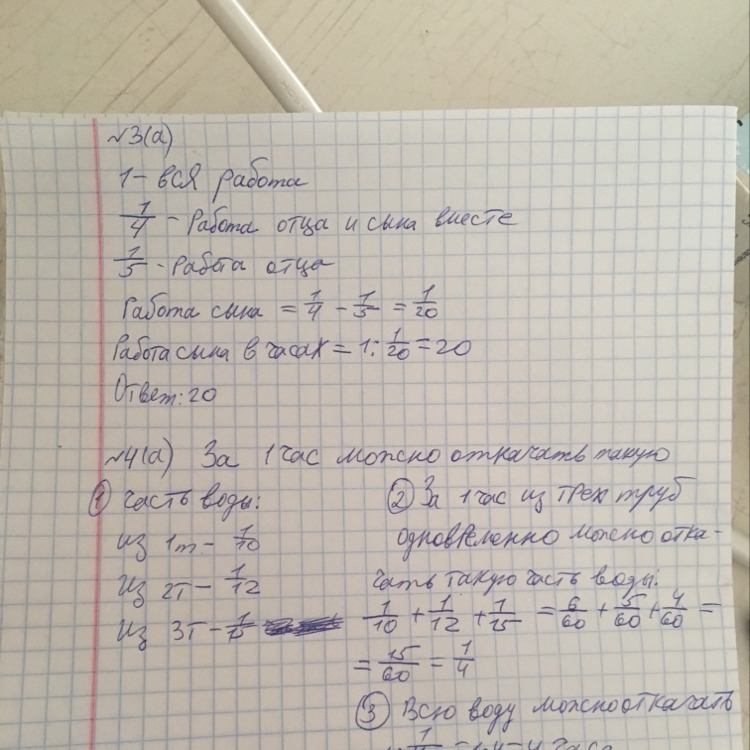 №3(а)
1 – вся работа
1/4 – Работа отца и сына вместе
1/5 – Работа отца
Работа сына = 1/4 – 1/5 = 1/20
Работа сына в часах = 1 : 1/20 = 20
Ответ: 20
№4(а) За 1 час можно откачать такую
① часть воды:
из 1т – 1/10
из 2т – 1/12
из 3т – 1/15
② За 1 час из трех труб
одновременно можно отка-
чать такую часть воды:
1/10 + 1/12 + 1/15 = 6/60 + 5/60 + 4/60 =
= 15/60 = 1/4
③ Всю воду можно откачать